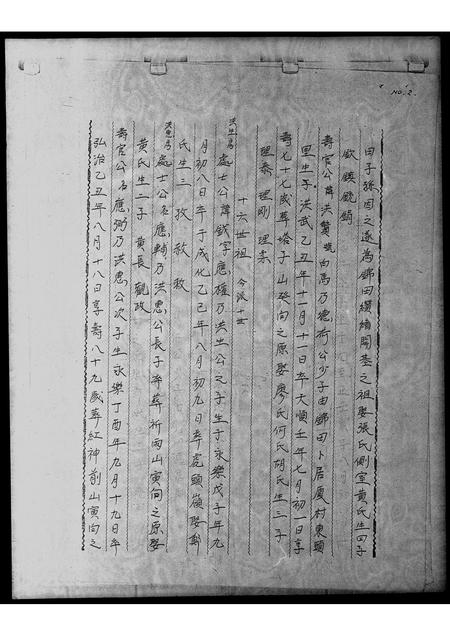 NO.2.
田子孫因之遂為錦田纘緒開基之祖娶張氏側室黃氏生四子
欽 鎮 銳 鋗
壽官公諱洪贄號白馬乃德荷公少子由錦田卜居廈村東頭
里生于洪武乙丑年十一月十一日卒天順壬年七月初一日享
壽七十七歲葬塔子山癸向之原娶廖氏何氏胡氏生三子
理泰 理剛 理柔
十六世祖 今派十世
洪生房 處士公諱鉞字應種乃洪生公之子生于永樂戊子年九
月初八日卒于成化乙己年八月初九日葬虎頭嶺娶鄰
氏生三 孜 敖 敦
洪惠房 處士公名應輔乃洪惠公長子葬蔡祈雨山寅向之原娶
黃氏生二子 黃長 觀政
壽官公名應弼乃洪惠公次子生永樂丁酉年九月十九日卒
弘治乙丑年八月十八日享壽八十九歲葬紅神前山寅向之